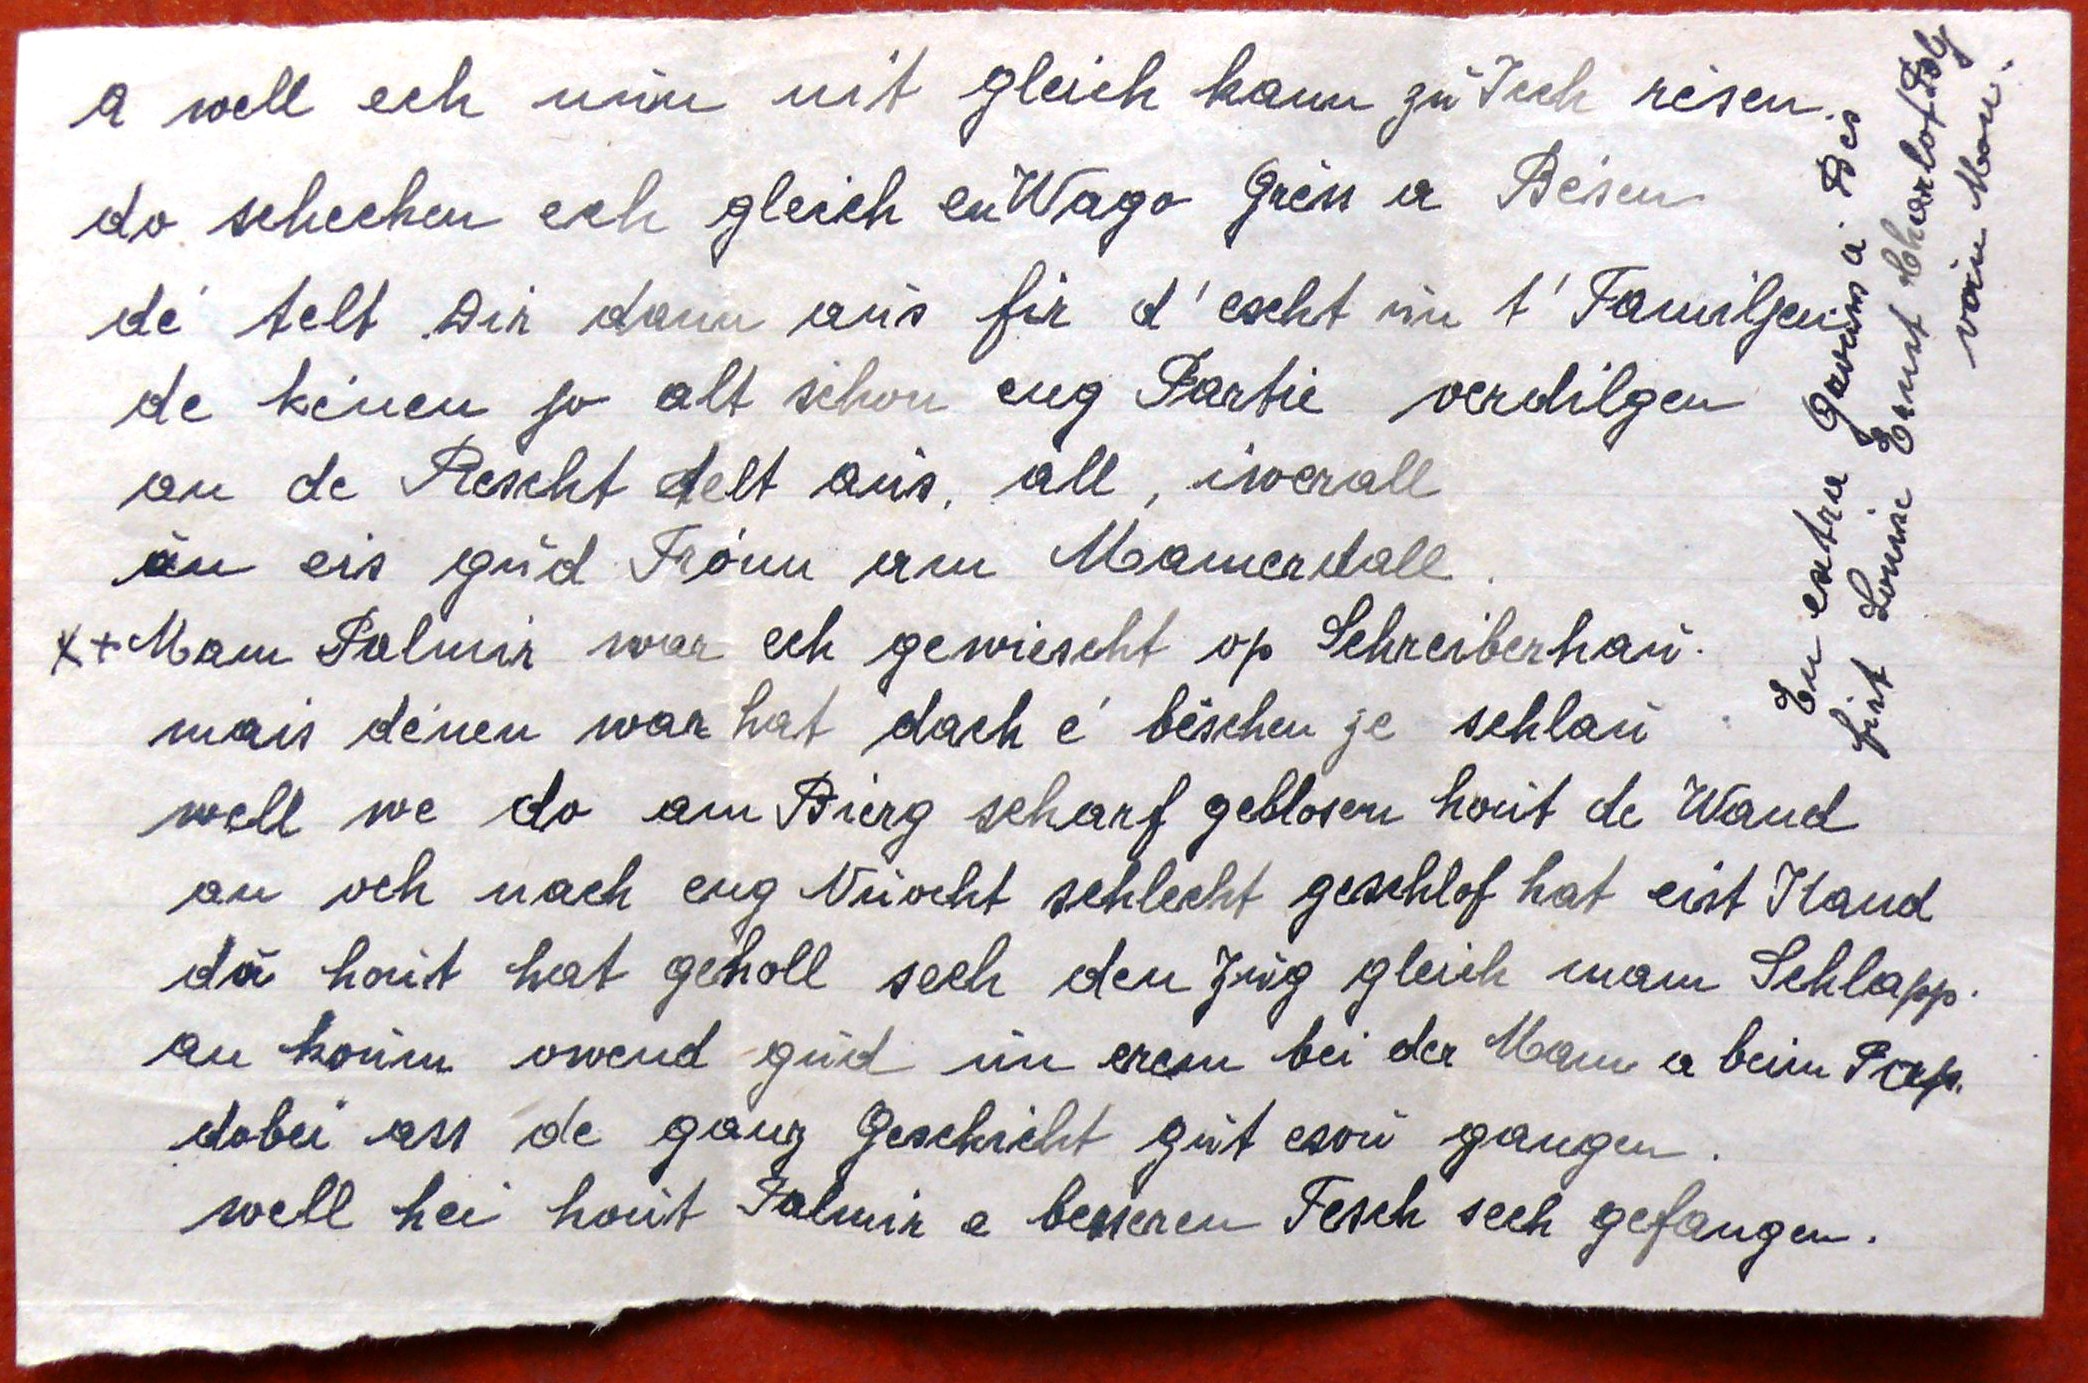 A well ech nün nit gleich kann zü Iech résen.
do schecken ech gleich en Wago Gréss a Bésen
dé telt Dir dann aüs fir d'escht ün t'Familjen
de kénen jo alt schon eng Partie verdilgen
an de Rescht delt aüs, all, iwerall
än eis güd Frönn am Mamerdall.
x+ Mam Palmir war ech gewiescht op Schreiberhaü.
mais dénen war hat dach é bëschen ze schlaü
well we do am Bierg scharf geblosen hoüt de Wand
an och nach eng Nüocht schlecht geschlof hat eist Kand
dü hoüt hat geholl sech den Züg gleich mam Schlapp.
an koüm owend güd ün erem bei der Mam a beim Pap.
dobei ass de ganz Geschicht güt esoü gangen.
well hei hoüt Palmir e besseren Fesch sech gefangen.
En extra Gruss a Bés
firt Louise Ernst Charlot Poly
vün Mon.